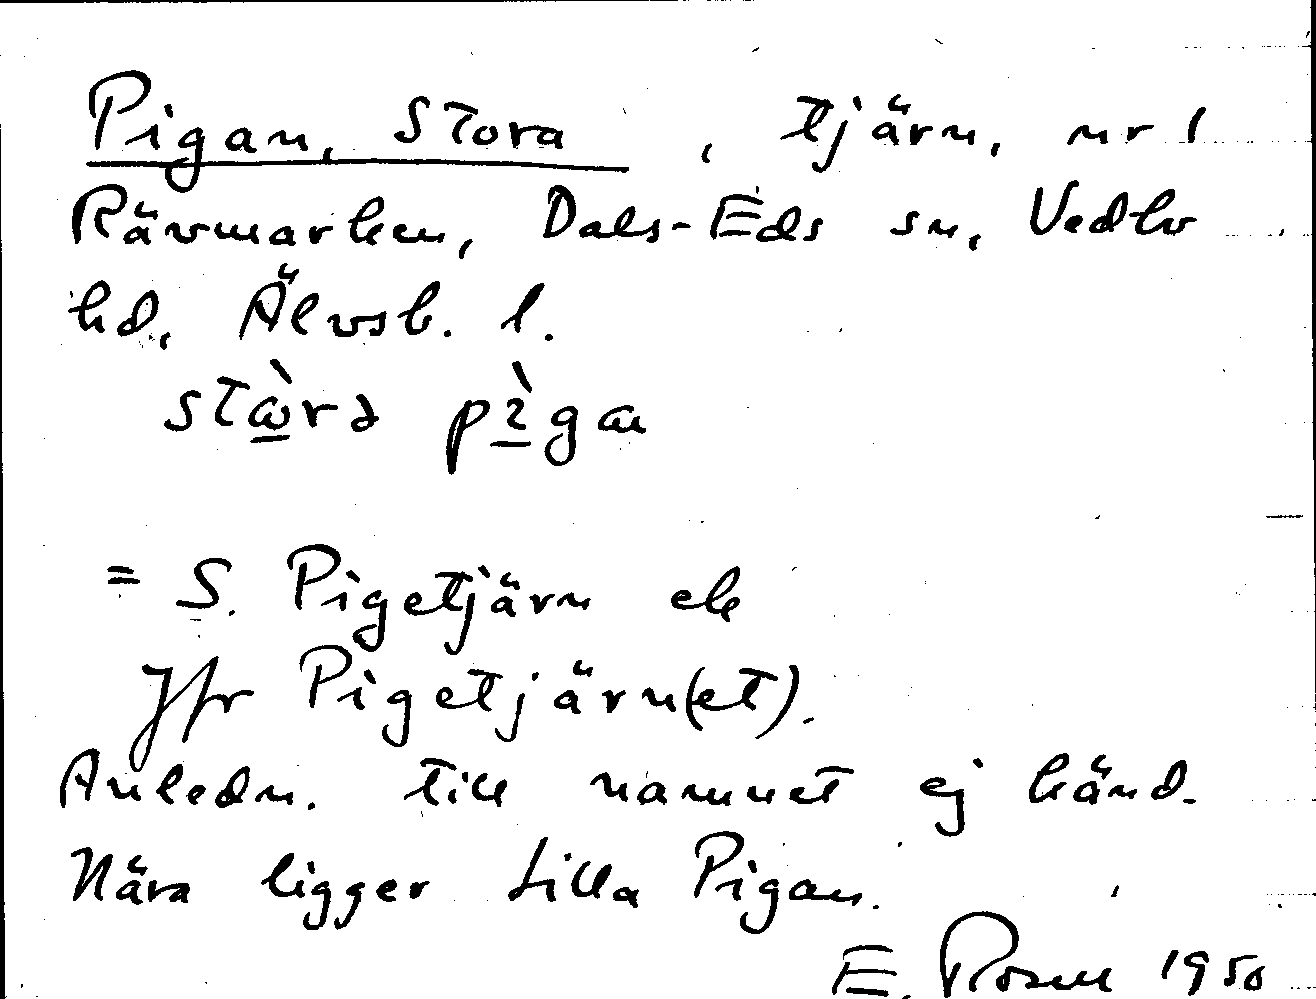 Pigan, Stora, tjärn, nr 1
Rävmarken, Dals-Eds sn, Vedbo
hd, Älvsb. l.
stɷ̀rə pìga
= S. Pigetjärn ek
Jfr Pigetjärn(et).
Anledn. till namnet ej känd.
Nära ligger Lilla Pigan.
E. Rosell 1950